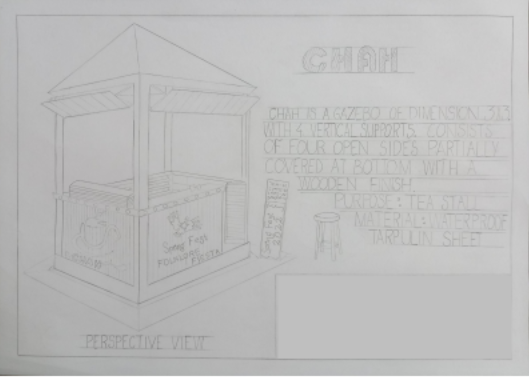 CHAH
CHAH IS A GAZEBO OF DIMENSION 3X3
WITH 4 VERTICAL SUPPORTS. CONSISTS
OF FOUR OPEN SIDES PARTIALLY
COVERED AT BOTTOM WITH A
WOODEN FINISH
PURPOSE: TEA STALL
MATERIAL: WATERPROOF
TARPULIN SHEET
Spring Fest
FOLKLORE
FIESTA
PERSPECTIVE VIEW